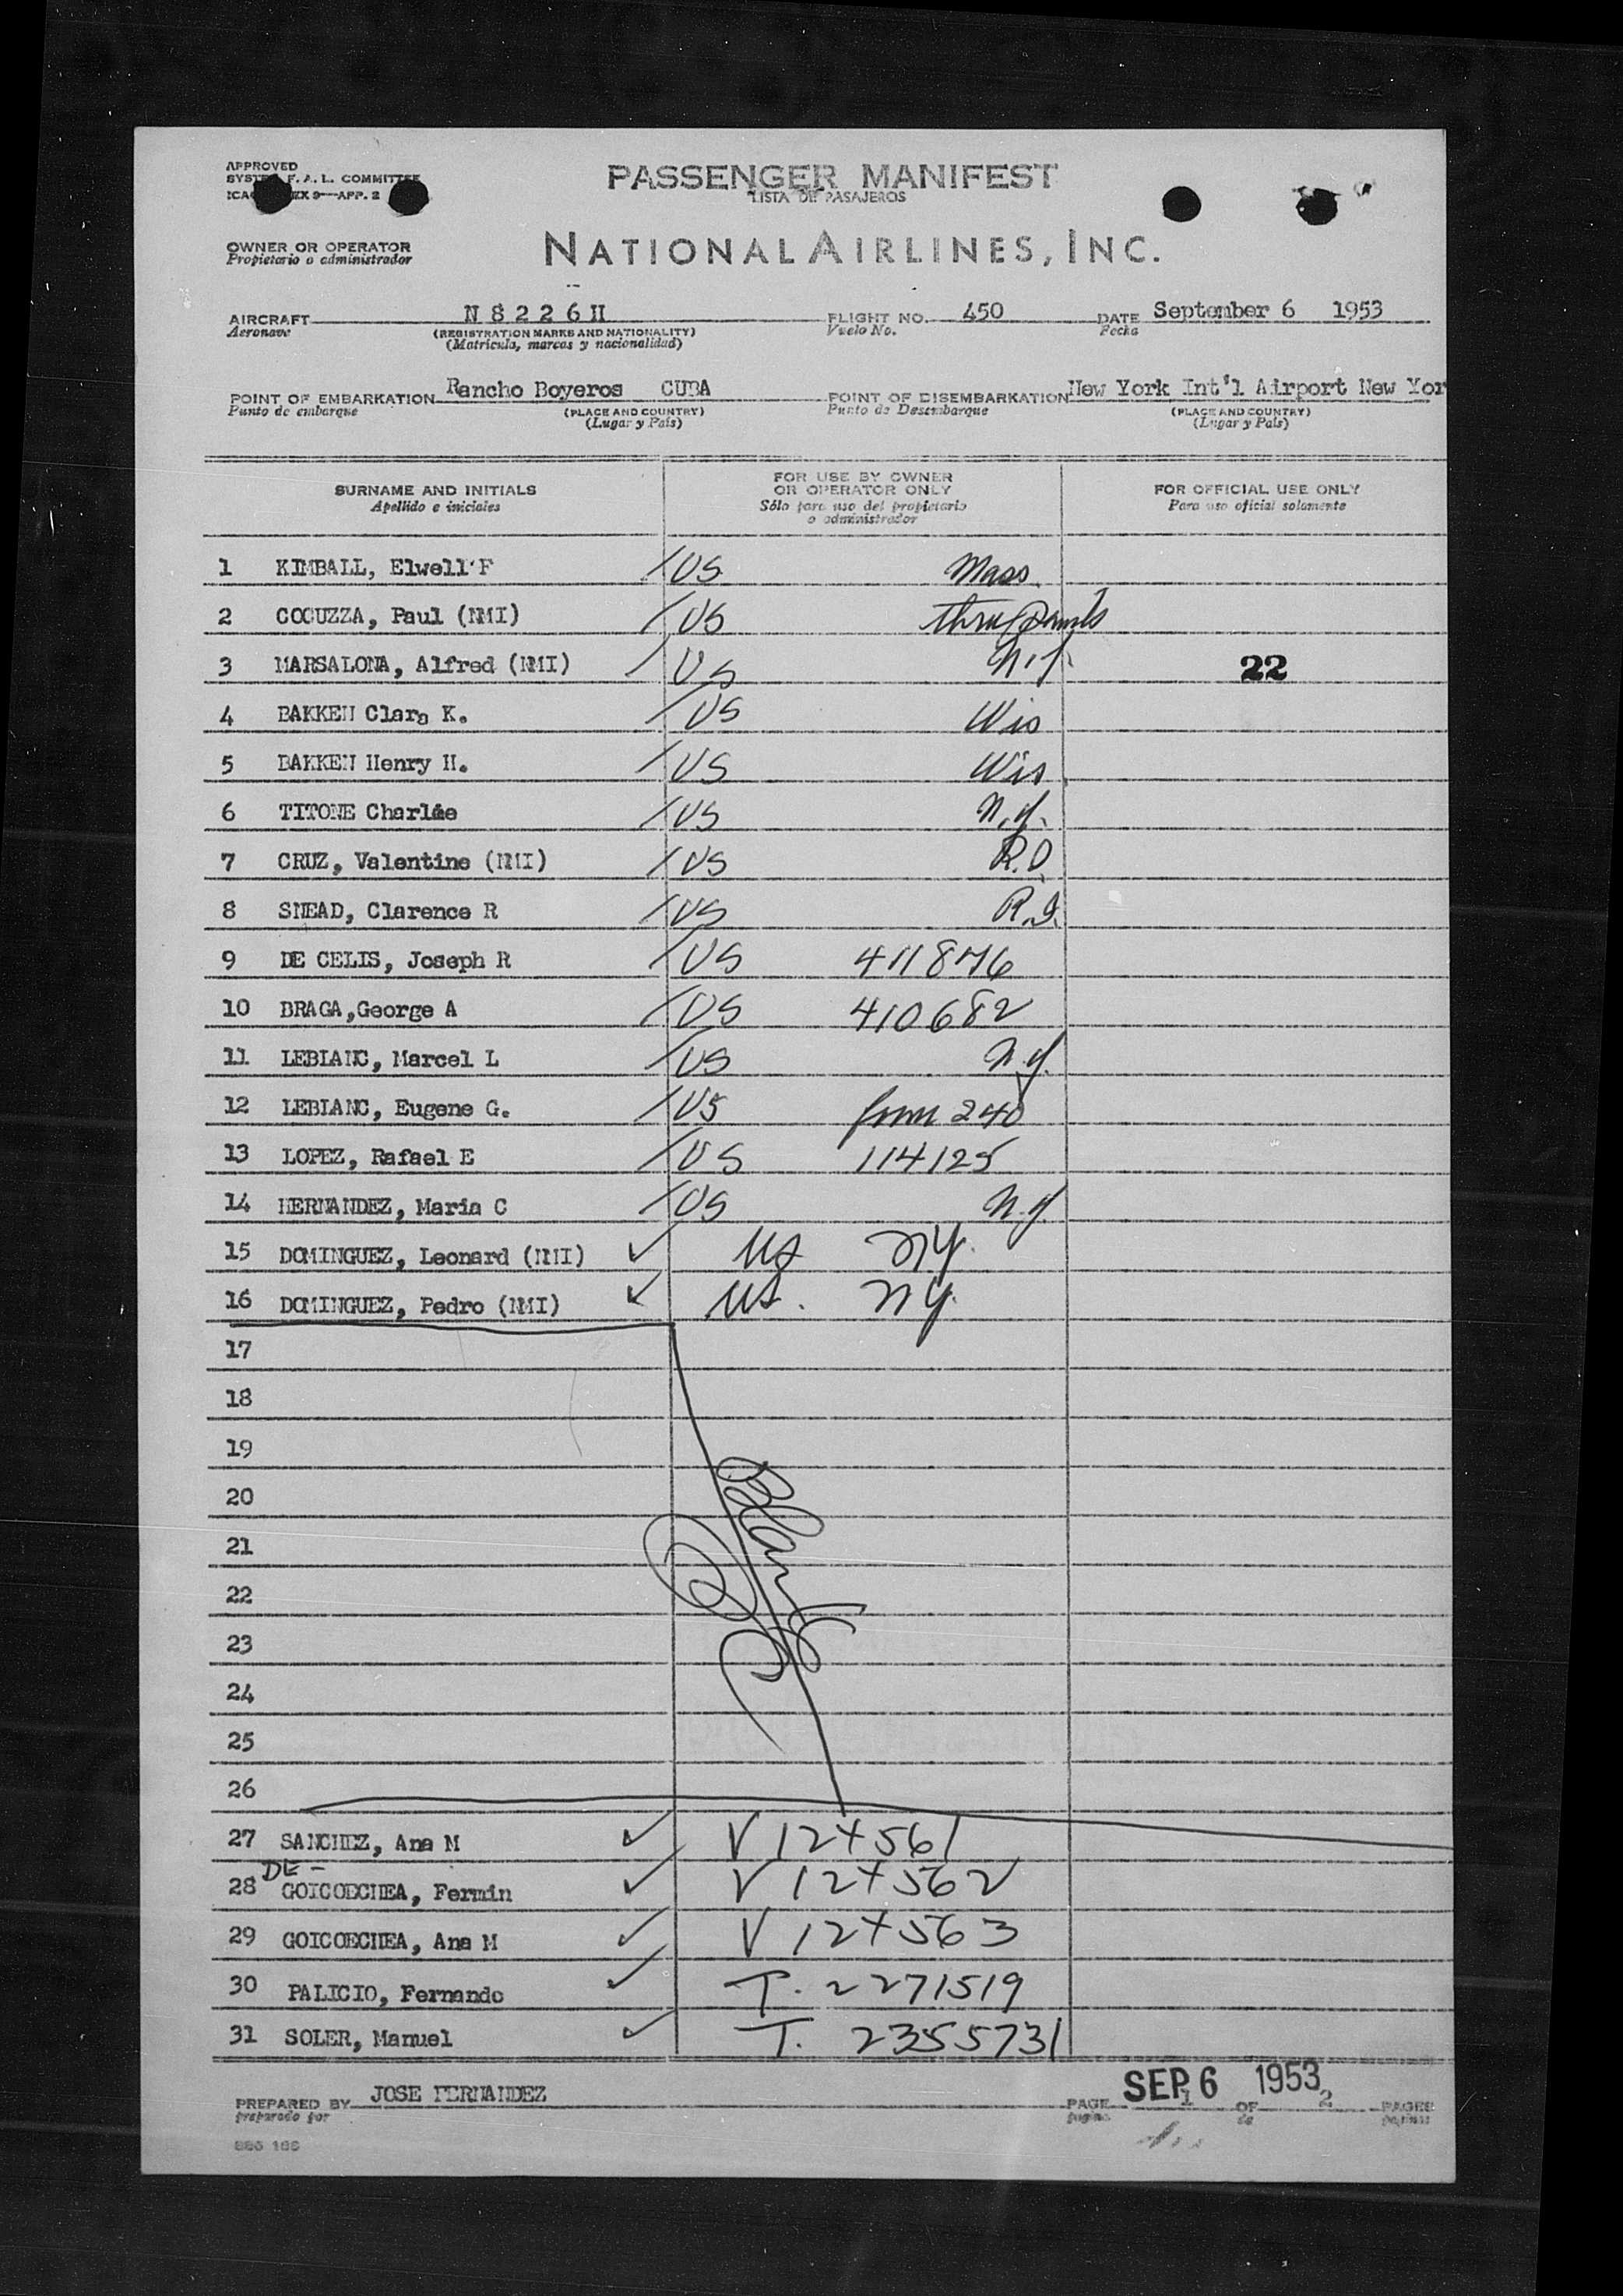 APPROVED
SYSTEM F. A. L. COMMITTEE
ICAO EX 9—APP. 2
PASSENGER MANIFEST
LISTA DE PASAJEROS
OWNER OR OPERATOR
Propietario o administrador
NATIONAL AIRLINES, INC.
AIRCRAFT N8226H FLIGHT NO. 450 DATE September 6 1953
Aeronave (REGISTRATION MARKS AND NATIONALITY) Vuelo No. Fecha
(Matricula, marcas y nacionalidad)
POINT OF EMBARKATION Rancho Boyeros CUBA POINT OF DISEMBARKATION New York Int'l Airport New Yor
Punto de embarque (PLACE AND COUNTRY) Punto de Desembarque (PLACE AND COUNTRY)
(Lugar y País) (Lugar y País)
SURNAME AND INITIALS FOR USE BY OWNER OR OPERATOR ONLY FOR OFFICIAL USE ONLY
Apellido e iniciales Sólo para uso del propietario o administrador Para uso oficial solamente
1 KIMBALL, Elwell F /US Mass.
2 COCUZZA, Paul (NMI) /US thru
3 MARSALONA, Alfred (NMI) /US 22
4 BAKKEN Clara K. /US Wis
5 BAKKEN Henry H. /US Wis
6 TITONE Charlie /US N.Y.
7 CRUZ, Valentine (NMI) /US
8 SNEAD, Clarence R /US R.I.
9 DE CELIS, Joseph R /US 411876
10 BRAGA,George A /US 410682
11 LEBLANC, Marcel L /US N.Y.
12 LEBLANC, Eugene G. /US from 240
13 LOPEZ, Rafael E /US 114125
14 HERNANDEZ, Maria C /US N.Y.
15 DOMINGUEZ, Leonard (NMI) ✓ US NY.
16 DOMINGUEZ, Pedro (NMI) ✓ US. NY.
17
18
19
20
21
22
23
24
25
26
27 SANCHEZ, Ana M ✓ V 124561
DE -
28 GOICOECHEA, Fermin ✓ V 124562
29 GOICOECHEA, Ana M ✓ V 124563
30 PALICIO, Fernando ✓ T. 2271519
31 SOLER, Manuel ✓ T. 2355731
SEP 6 1953
PREPARED BY JOSE FERNANDEZ PAGE 1 OF 2 PAGES
preparado por pagina de paginas